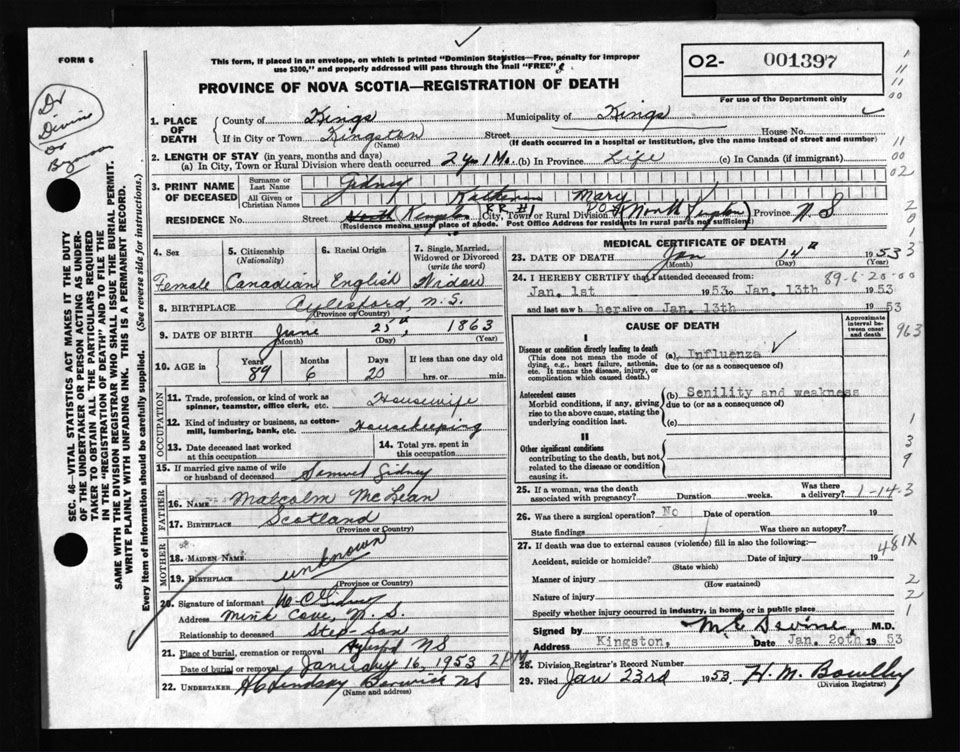 FORM 6
This form, if placed in an envelope, on which is printed "Dominion Statistics—Free, penalty for improper
use $300," and properly addressed will pass through the mail "FREE".
PROVINCE OF NOVA SCOTIA—REGISTRATION OF DEATH
O2- 001397
For use of the Department only
Dr
Divine
or
1. PLACE OF DEATH
County of Kings Municipality of Kings
If in City or Town Kingston Street House No.
(Name) (If death occurred in a hospital or institution, give the name instead of street and number)
2. LENGTH OF STAY (in years, months and days)
(a) In City, Town or Rural Division where death occurred 2 yrs 1 Mo. (b) In Province Life (c) In Canada (if immigrant)
3. PRINT NAME OF DECEASED
Surname or Last Name Gidney
All Given or Christian Names Katherine Mary
RR #1 P O
RESIDENCE No. Street North Kingston City, Town or Rural Division (North Kingston) Province N.S
(Residence means usual place of abode. Post Office Address for residents in rural parts not sufficient)
4. Sex Female
5. Citizenship (Nationality) Canadian
6. Racial Origin English
7. Single, Married, Widowed or Divorced (write the word) Widow
8. BIRTHPLACE Aylesford N.S.
(Province or Country)
9. DATE OF BIRTH June 25th, 1863
(Month) (Day) (Year)
10. AGE in Years 89 Months 6 Days 20 If less than one day old hrs. or min.
OCCUPATION
11. Trade, profession, or kind of work as spinner, teamster, office clerk, etc. Housewife
12. Kind of industry or business, as cotton-mill, lumbering, bank, etc. Housekeeping
13. Date deceased last worked at this occupation
14. Total yrs. spent in this occupation
15. If married give name of wife or husband of deceased Samuel Gidney
FATHER
16. NAME Malcolm McLean
17. BIRTHPLACE Scotland
(Province or Country)
MOTHER
18. MAIDEN NAME unknown
19. BIRTHPLACE
(Province or Country)
20. Signature of informant W C Gidney
Address Mink Cove, N.S.
Relationship to deceased Step-Son
21. Place of burial, cremation or removal Aylesford NS
Date of burial or removal January 16, 1953 2 PM
22. UNDERTAKER H C Lindsay Berwick NS
(Name and address)
MEDICAL CERTIFICATE OF DEATH
23. DATE OF DEATH Jan 14th 1953
(Month) (Day) (Year)
89-6-20-00
24. I HEREBY CERTIFY that I attended deceased from:
Jan. 1st 1953 to Jan. 13th 1953
and last saw her alive on Jan. 13th 1953
CAUSE OF DEATH
Approximate interval between onset and death
963
I
Disease or condition directly leading to death (a) Influenza
(This does not mean the mode of dying, e.g., heart failure, asthenia, etc. It means the disease, injury, or complication which caused death.)
due to (or as a consequence of)
Antecedent causes (b) Senility and weakness
Morbid conditions, if any, giving rise to the above cause, stating the underlying condition last.
due to (or as a consequence of)
(c)
II
Other significant conditions
contributing to the death, but not related to the disease or condition causing it.
25. If a woman, was the death associated with pregnancy? Duration weeks. Was there a delivery?
1-14-3
26. Was there a surgical operation? No Date of operation 19
State findings Was there an autopsy?
27. If death was due to external causes (violence) fill in also the following:—
481X
Accident, suicide or homicide? Date of injury 19
(State which)
Manner of injury
(How sustained)
Nature of injury
Specify whether injury occurred in industry, in home, or in public place
Signed by M E Devine, M.D.
Address Kingston, Date Jan. 20th 1953
28. Division Registrar's Record Number
29. Filed Jan 23rd 1953 H. M. Bowlby
(Division Registrar)
SEC. 46—VITAL STATISTICS ACT MAKES IT THE DUTY
OF THE UNDERTAKER OR PERSON ACTING AS UNDER-
TAKER TO OBTAIN ALL THE PARTICULARS REQUIRED
IN THE "REGISTRATION OF DEATH" AND TO FILE THE
SAME WITH THE DIVISION REGISTRAR WHO SHALL ISSUE THE BURIAL PERMIT.
WRITE PLAINLY WITH UNFADING INK. THIS IS A PERMANENT RECORD.
Every item of information should be carefully supplied. (See reverse side for instructions.)